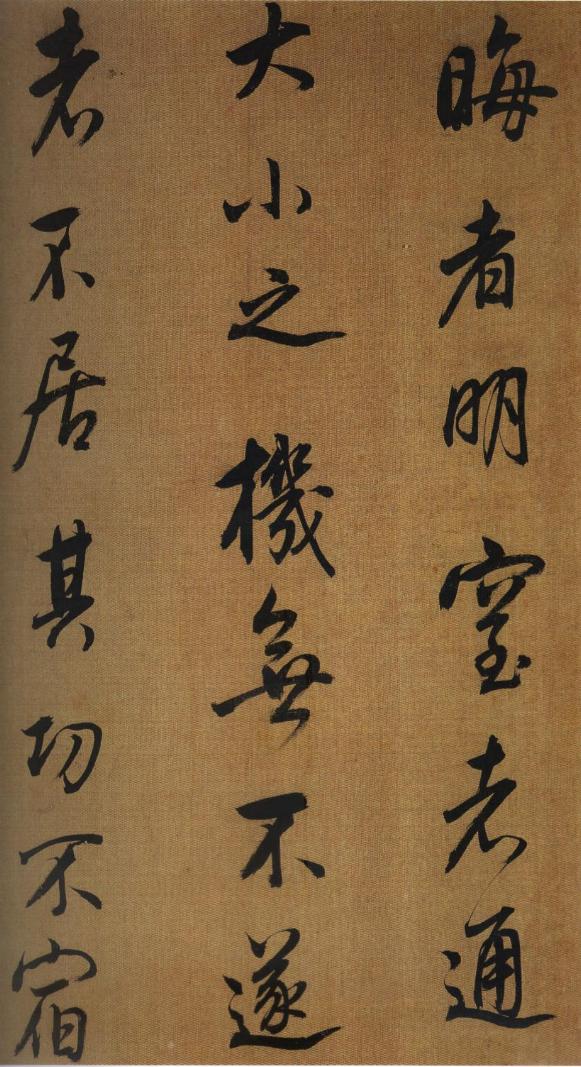 晦者明窒者通
大小之機無不遂
者不居其功不宿